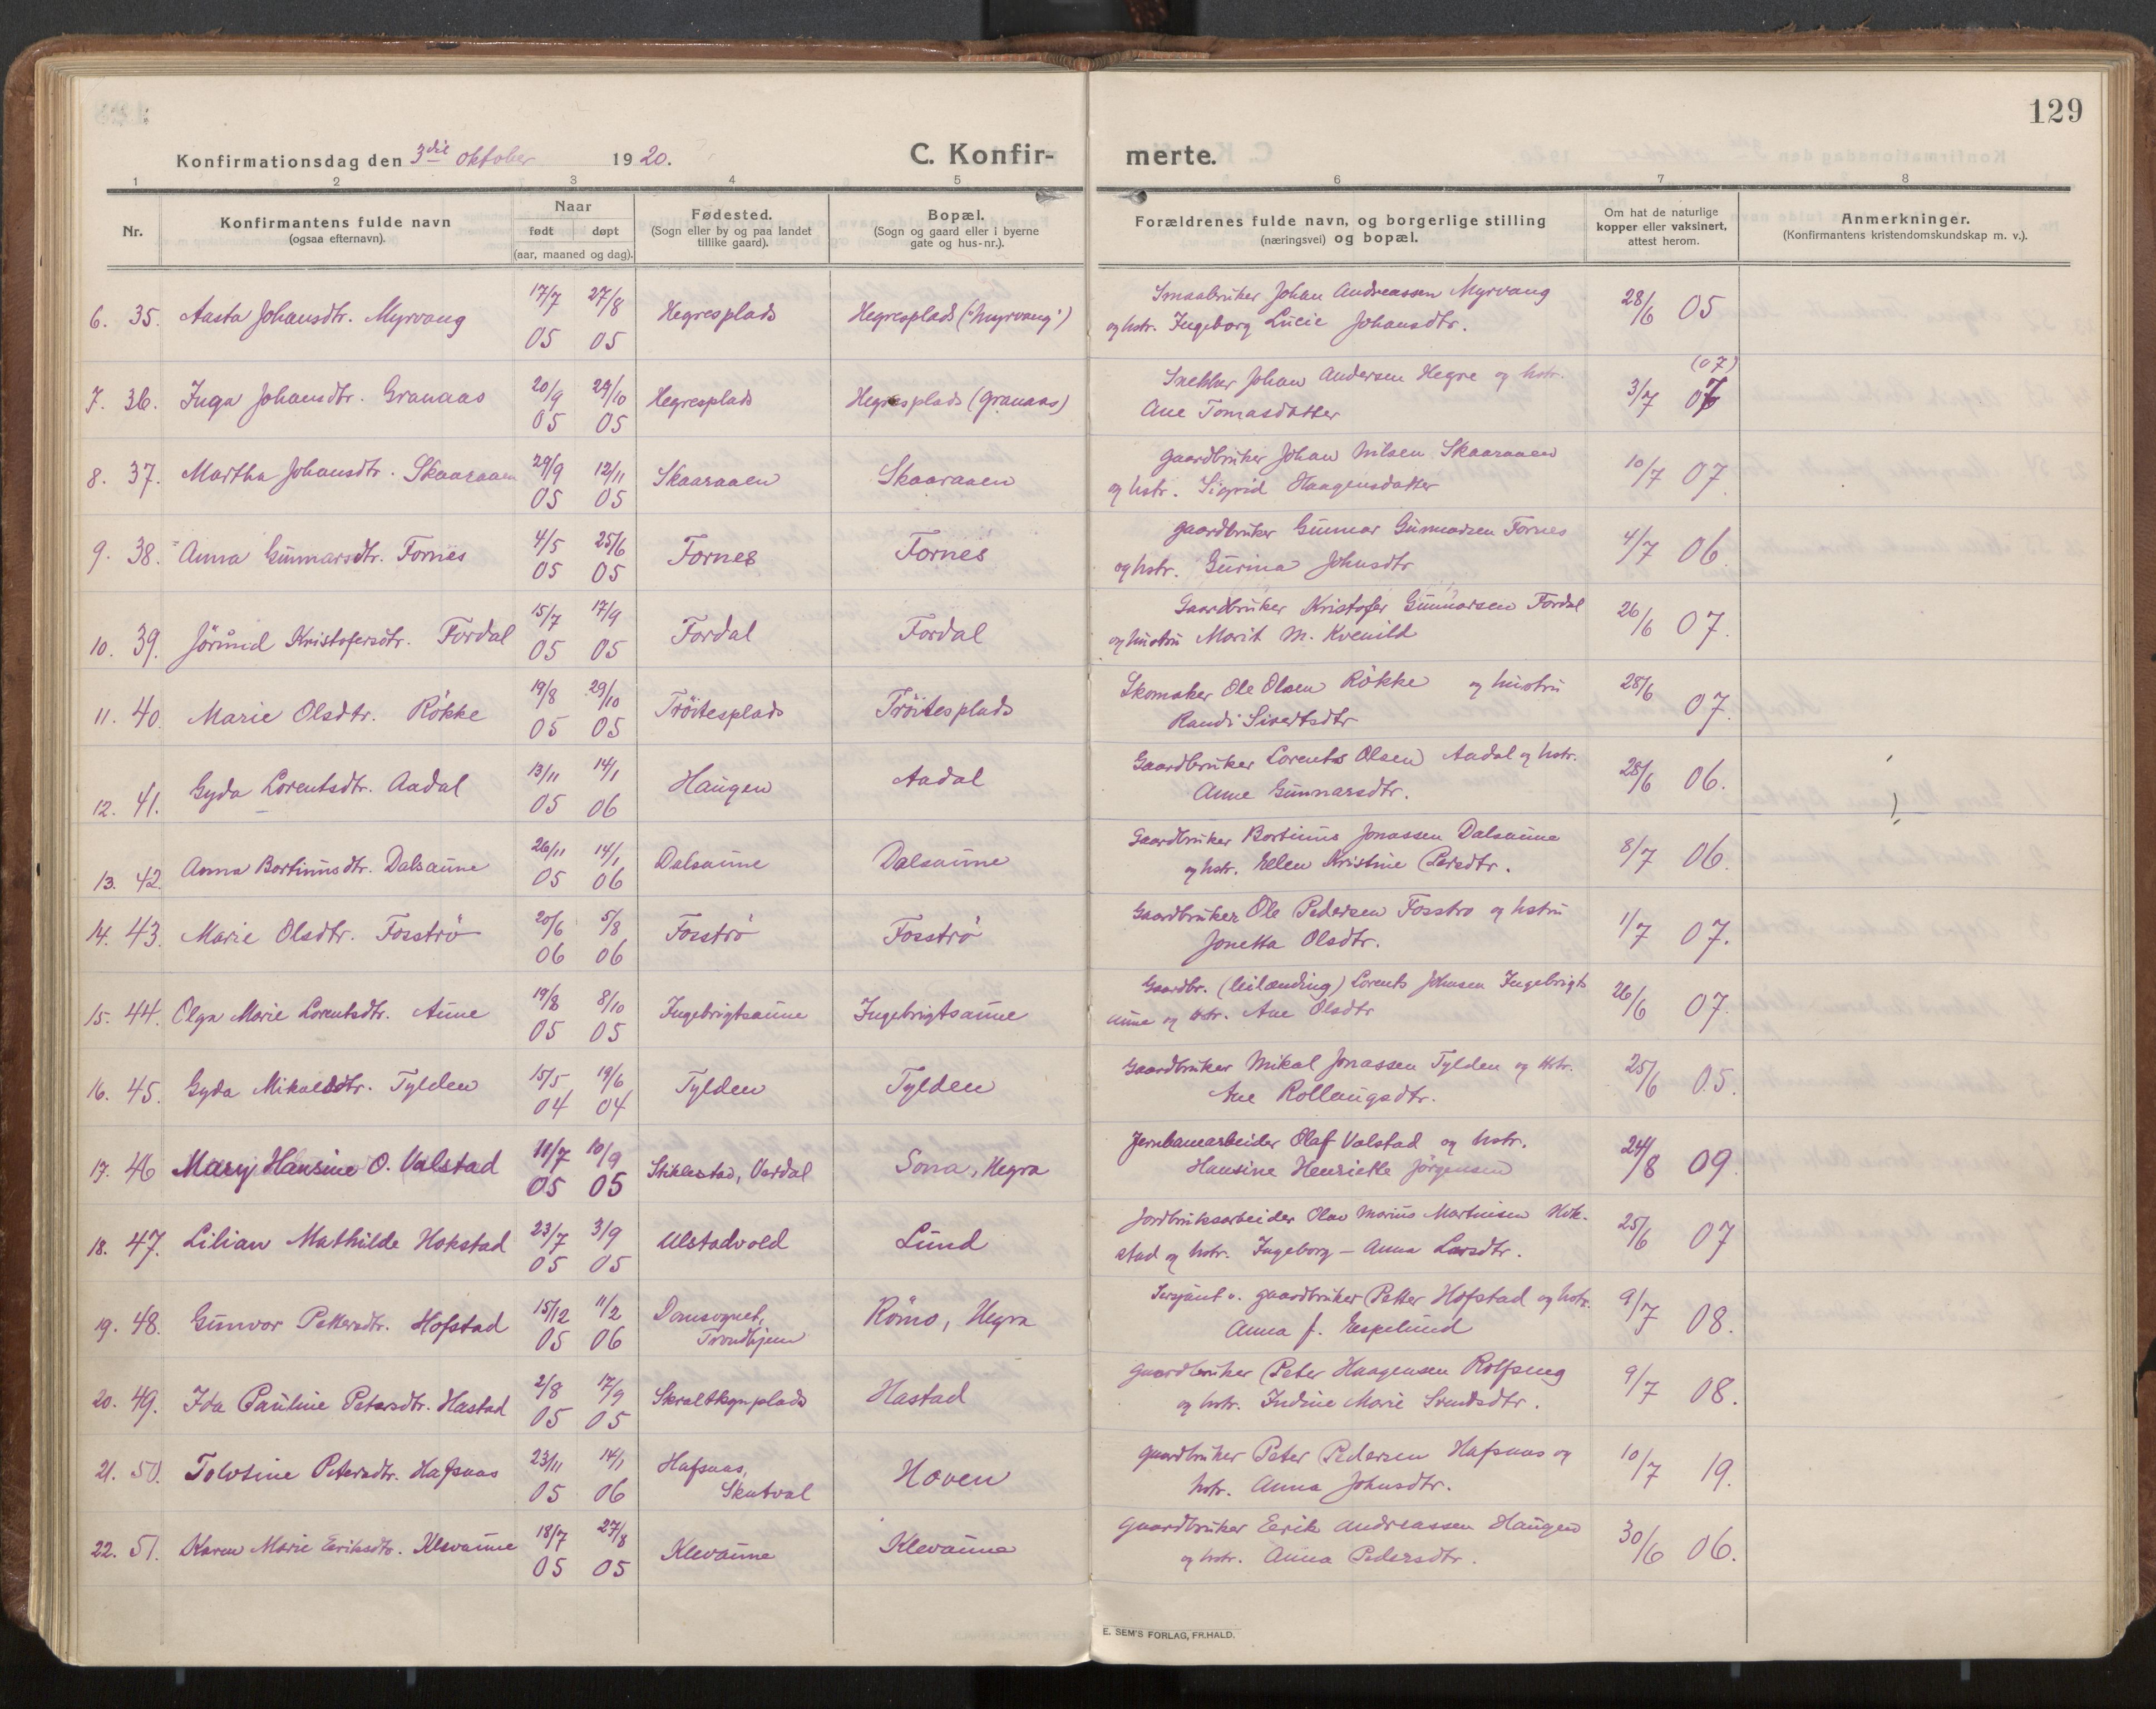 129
Konfirmationsdag den 3die oktober 1920.
C. Konfir-
merte.
1 2 3 4 5 6 7 8
Nr.
Konfirmantens fulde navn
(ogsaa efternavn).
Naar
født døpt
(aar, maaned og dag).
Fødested.
(Sogn eller by og paa landet
tillike gaard).
Bopæl.
(Sogn og gaard eller i byerne
gate og hus-nr.).
Forældrenes fulde navn, og borgerlige stilling
(næringsvei) og bopæl.
Om hat de naturlige
kopper eller vaksinert,
attest herom.
Anmerkninger.
(Konfirmantens kristendomskundskap m. v.).
6. 35. Aasta Johansdtr. Myrvang 17/7 05 27/8 05 Hegresplads Hegresplads ("Myrvang")
Smaabruker Johan Andreassen Myrvang
og hstr. Ingeborg Lucie Johansdtr. 28/6 05
7. 36. Inga Johansdtr. Granaas 20/9 05 29/10 05 Hegresplads Hegresplads (Granaas)
Snekker Johan Andersen Hegre og hstr.
Ane Tomasdatter 3/7 07 (07)
8. 37. Martha Johansdtr. Skaaraaen 29/9 05 12/11 05 Skaaraaen Skaaraaen
Gaardbruker Johan Nilsen Skaaraaen
og hstr. Sigrid Haagensdatter 10/7 07
9. 38. Anna Gunnarsdtr. Fornes 4/5 05 25/6 05 Fornes Fornes
Gaardbruker Gunnar Gunnarsen Fornes
og hstr. Gurina Johnsdtr 4/7 06.
10. 39. Jörund Kristofersdtr. Fordal 15/7 05 17/9 05 Fordal Fordal
Gaardbruker Kristofer Gunnarsen Fordal
og hustru Marit M. Kvenild 26/6 07.
11. 40. Marie Olsdtr. Rökke 19/8 05 29/10 05 Tröitesplads Tröitesplads
Skomaker Ole Olsen Rökke og hustru
Randi Sivertsdtr 28/6 07.
12. 41. Gyda Lorentsdtr. Aadal 13/11 05 14/1 06 Haugen Aadal
Gaardbruker Lorents Olsen Aadal og hstr.
Anne Gunnarsdtr. 28/6 06.
13. 42. Anna Bortinusdtr. Dalsaune 26/11 05 14/1 06 Dalsaune Dalsaune
Gaardbruker Bortinus Jonassen Dalsaune
og hstr. Ellen Kristine Persdtr. 8/7 06.
14. 43. Marie Olsdtr. Fosströ 20/6 06 5/8 06 Fosströ Fosströ
Gaardbruker Ole Pedersen Fosstro og hstru
Jonetta Olsdtr. 1/7 07.
15. 44. Olga Marie Lorentsdtr. Aune 19/8 05 8/10 05 Ingebrigtsaune Ingebrigtsaune
Gaardbr. (leilænding) Lorents Johnsen Ingebrigts
aune og hstr. Ane Olsdtr 26/6 07.
16. 45. Gyda Mikalsdtr. Tylden 15/5 04 19/6 04 Tylden Tylden
Gaardbruker Mikal Jonassen Tylden og hstr.
Ane Rollaugsdtr. 25/6 05.
17. 46 Mary Hansine O. Valstad 11/7 05 10/9 05 Stiklestad, Verdal Sona, Hegra
Jernbanearbeider Olaf Valstad og hstr.
Hansine Henriette Jörgensen 24/8 09.
18. 47. Lilian Mathilde Hokstad 23/7 05 3/9 05 Ulstadvold Lund
Jordbruksarbeider Olav Marius Martinsen Hok-
stad og hstr. Ingeborg - Anna Larsdtr. 25/6 07
19. 48. Gunvor Pettersdtr. Hofstad 15/12 05 11/2 06 Domsognet, Trondhjem Römo, Hegra
Sersjant o. gaardbruker Petter Hofstad og hstr.
Anna J. Espelund 9/7 08.
20. 49. Ida Pauline Petersdtr. Hastad 2/8 05 17/9 05 Skrelthynplads Hastad
Gaardbruker Peter Haagensen Rolfseng
og hstr. Indine Marie Svendsdtr. 9/7 08.
21. 50. Tolvtine Petersdtr. Hafsaas 23/11 05 14/1 06 Hafsaas, Skatval Hoven
Gaardbruker Peter Pedersen Hafsaas og
hstr. Anna Johnsdtr. 10/7 19.
22. 51. Karen Marie Eeriksdtr. Klevaune 18/7 05 27/8 05 Klevaune Klevaune
Gaardbruker Eerik Andreassen Haugen
og hstr. Anna Pedersdtr. 30/6 06.
E. SEM'S FORLAG, FR.HALD.